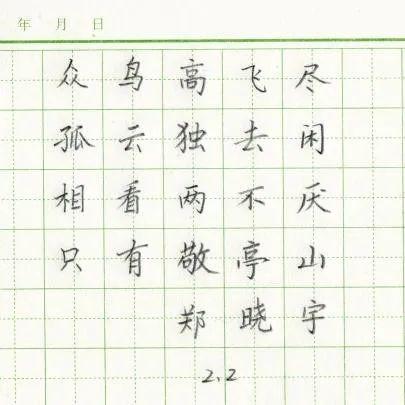 年 月 日
众鸟高飞尽
孤云独去闲
相看两不厌
只有敬亭山
郑晓宇
2.2